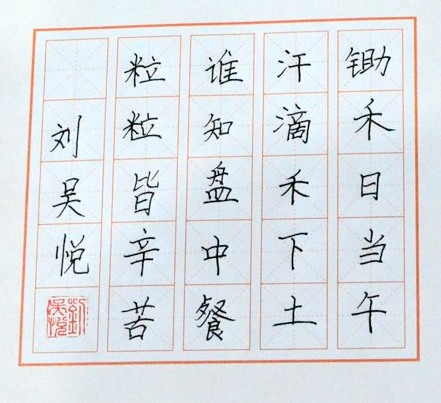 锄禾日当午
汗滴禾下土
谁知盘中餐
粒粒皆辛苦
刘吴悦
劉吴悦